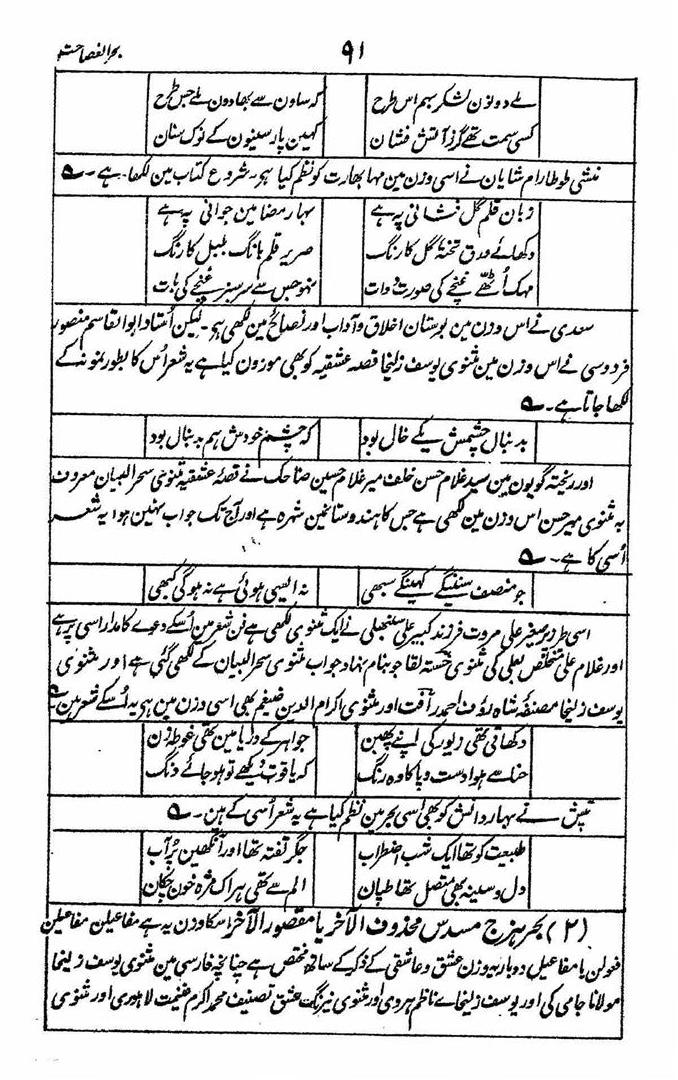 ۹۱ بحر الفصاحت
لے دونون لشکر بہم اس طرح کہ ساون سے بھادون ملے جس طرح
کسی سمت تھے گرز آتش فشان کہین پار سینون کے نوک سنان
منشی طوطا رام شایان نے اسی وزن مین مہا بھارت کو نظم کیا ہے یہ شروع کتاب مین لکھا ہے۔ ؎
زبان قلم گل نشانی پہ ہے بہار مضامین جوانی پہ ہے
دکھائے ورق تختۂ گل کا رنگ صریر قلم بانگ بلبل کا رنگ
مہک اُٹھے غنچے کی صورت دوات نہو جس سے سرسبز غنچے کی بات
سعدی نے اس وزن مین بوستان اخلاق و آداب اور نصائح مین لکھی ہے۔ لیکن اُستاد ابوالقاسم منصور
فردوسی نے اس وزن مین مثنوی یوسف زلیخا قصہ عشقیہ کو بھی موزون کیا ہے یہ شعر اُس کا بطور نمونہ کے
لکھا جاتا ہے۔ ؎
بدنبال چشمش یکے خال بود کہ چشم خودش ہم بدنبال بود
اور ریختہ گویون مین سید غلام حسن خلف میر غلام حسین ضاحک نے قصۂ عشقیہ مثنوی سحر البیان معروف
بہ مثنوی میر حسن اس وزن مین لکھی ہے جس کا ہندوستانمین شہرہ ہے اور آج تک جواب نہین ہوا یہ شعر
اُسی کا ہے۔ ؎
جو منصف سنینگے کہینگے سبھی نہ ایسی ہوئی ہے نہ ہوگی کبھی
اسی طرز پر صغیر علی مروت فرزند کبیر علی سنبھلی نے ایک مثنوی لکھی ہے فن شعر مین اُسکے دعوے کا مدار اسی پر ہے
اور غلام علی متخلص بعلی کی مثنوی خستہ لقا جو بنام نہاد جواب مثنوی سحر البیان کے لکھی گئی ہے اور مثنوی
یوسف زلیخا مصنفۂ شاہ رؤف احمد رأفت اور مثنوی اکرام الدین ضیغم بھی اسی وزن مین ہے یہ اُسکے شعر ہین۔ ؎
دکھاتی تھی زیور کی اپنے پھبن جواہر کے دریا مین تھی غوطہ زن
حنا سے ہوا دست و پا کا وہ رنگ کہ یاقوت دیکھے تو ہو جائے دنگ
تپش نے بہار دانش کو بھی اسی بحر مین نظم کیا ہے یہ شعر اُسی کے ہین۔ ؎
طبیعت کو تھا ایک شب اضطراب جگر تفتہ تھا اور آنکھین پُر آب
دل و سینہ بھی متصل تھا طپان الم سے تھی ہر اک مژہ خون چکان
(۲) بحر ہزج مسدس محذوف الآخر یا مقصور الآخر اسکا وزن یہ ہے مفاعیلن مفاعیلن
فعولن یا مفاعیل دوبار یہ وزن عشق و عاشقی کے ذکر کے ساتھ مختص ہے چنانچہ فارسی مین مثنوی یوسف زلیخا
مولانا جامی کی اور یوسف زلیخاے ناظم ہروی اور مثنوی نیرنگ عشق تصنیف محمد اکرم غنیمت لاہوری اور مثنوی